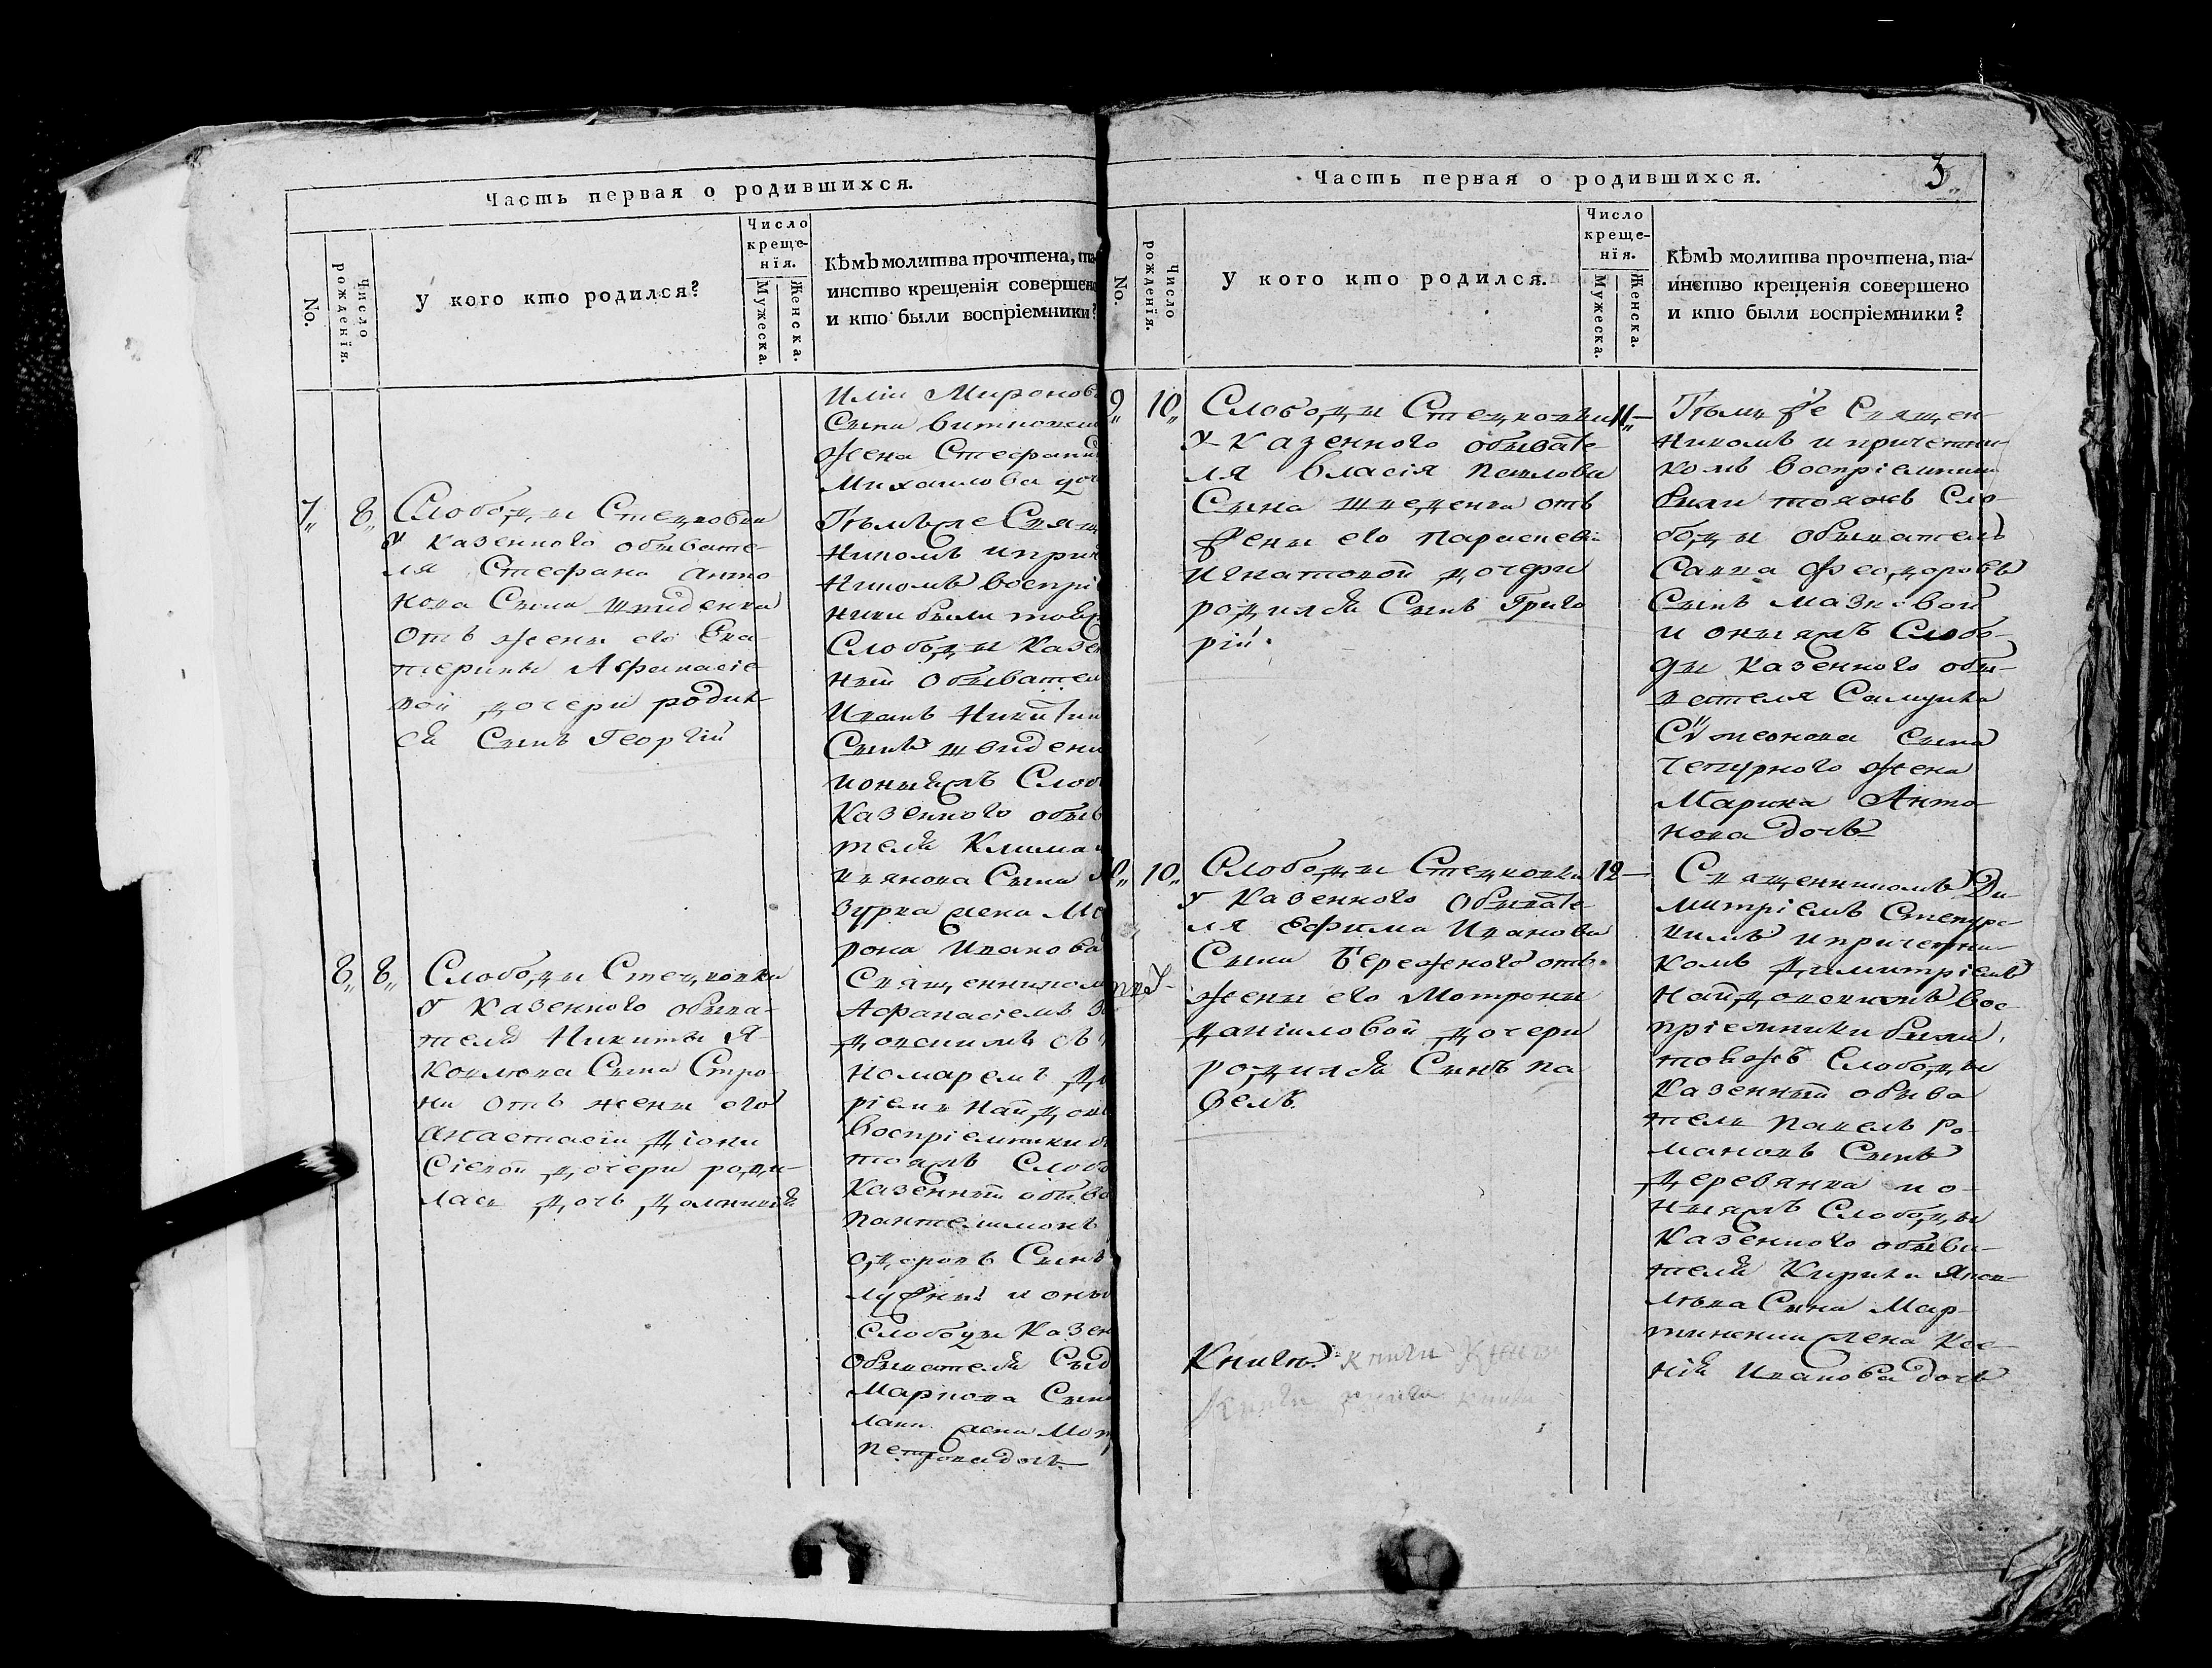 Часть первая о родившихся.
No.
Число рожденїя.
У кого кто родился?
Число
креще-
нїя.
Мужеска.
Женска.
Кѣмъ молитва прочтена, та
инство крещенія совершено
и кто были воспріемники?
Иліи Миронов
Сына
жена Стефанид
Михаилова доч
7,, 8,, Слободы Стецковки
У казенного обывате-
ля Стефана Анто
нова Сына Швиденка
отъ жены его Ека-
терины Афанасіе
вой дочери родил
ся Сынъ Георгій
Тѣмъ же Свящ
никомъ и прич
никомъ воспріе
ники были тояжъ
Слободы Казен
ный Обывател
Иванъ Никитин
Сынъ швиденк
и оныяжъ Слоб
Казенного обыв
теля Клима
Сына
зурка жена М
рона Иванова
8,, 8,, Слободы Стецковки
У Казенного обыва-
теля Никиты Я-
ковлева Сына Стро
ки отъ жены его
Анастасіи Діони
сіевой дочери роди-
лась дочь Домникія
Священником
Афанасіемъ
съ
номаремъ Ди
ріемъ Найдов
Воспріемники б
тояжъ Слобо
Казенный обыва
Пантелимонъ
одоровъ Сынъ
и оны
Слободы Казен
Обывателя Сид
Маркова Сына
жена Мот
Петрова дочь
Часть первая о родившихся.
3
No.
Число рожденїя.
У кого кто родился.
Число
креще-
нїя.
Мужеска.
Женска.
Кѣмъ молитва прочтена, та-
инство крещенія совершено
и кто были воспріемники?
9,, 10,, Слободы Стецковки 11,, —
У Казенного обывате
ля Власія Павлова
Сына Шведенка отъ
жены его Параскеви
Игнатовой дочери
родился Сынъ Григо
рій.
Тѣмъ же Священ-
никомъ и причетни-
комъ воспріемники
были тояжъ Сло-
боды обыватель
Савва Феодоровъ
Сынъ Мазновой
и оныяжъ Слобо-
ды Казенного обы-
вателя Самуила
Сѵмеонова Сына
Чепурного жена
Марина Анто-
нова дочь
10,, 10,, Слободы Стецковки 12 —
У Казенного Обывате
ля Ефима Иванова
Сына Бережного отъ
жены его Мотроны
Даніиловой дочери
родился Сынъ Па
велъ.
Священникомъ Ди
митріемъ Степур-
кимъ и причетни-
комъ Димитріемъ
Найдовскимъ Вос-
пріемники были
тояжъ Слободы
Казенный обыва
тель Павелъ Ро-
мановъ Сынъ
Деревянка и о-
ныяжъ Слободы
Казенного обыва-
теля Кирила Яков-
лева Сына Мар-
тиненки жена Ксе-
нія Иванова дочь
Книги. книги книги
Книги книги книги